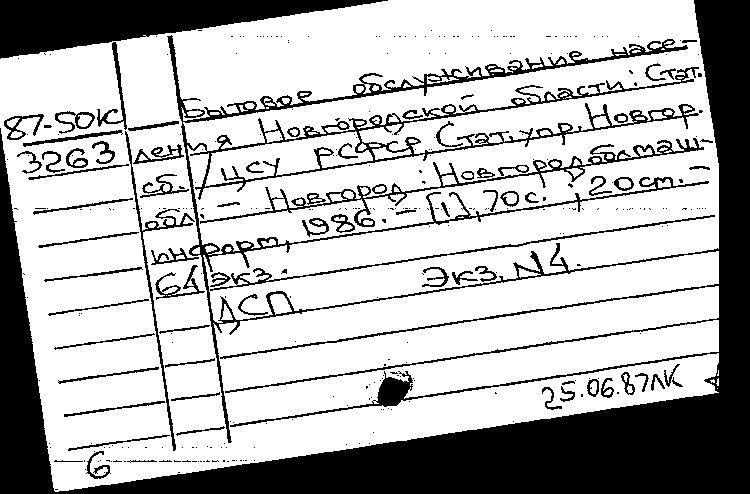 87-50К
3263
Бытовое обслуживание насе-
ления Новгородской области: Стат.
сб. / ЦСУ РСФСР, Стат. упр. Новгор.
обл. – Новгород : Новгородоблмаш-
информ, 1986. – [1], 70 с. ; 20 см. –
64 экз.
ДСП. Экз. N4.
25.06.87ЛК
6